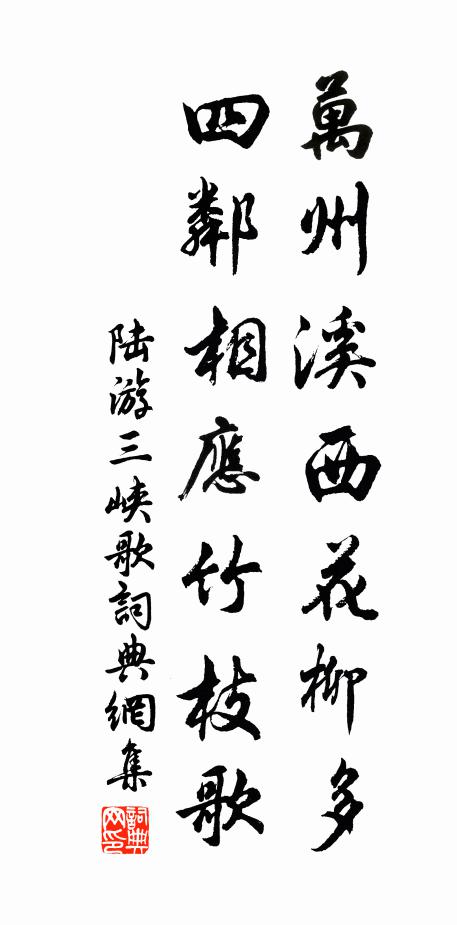 萬州溪西花柳多
四鄰相應竹枝歌
陆游三峽歌詞典網集
詞典網印